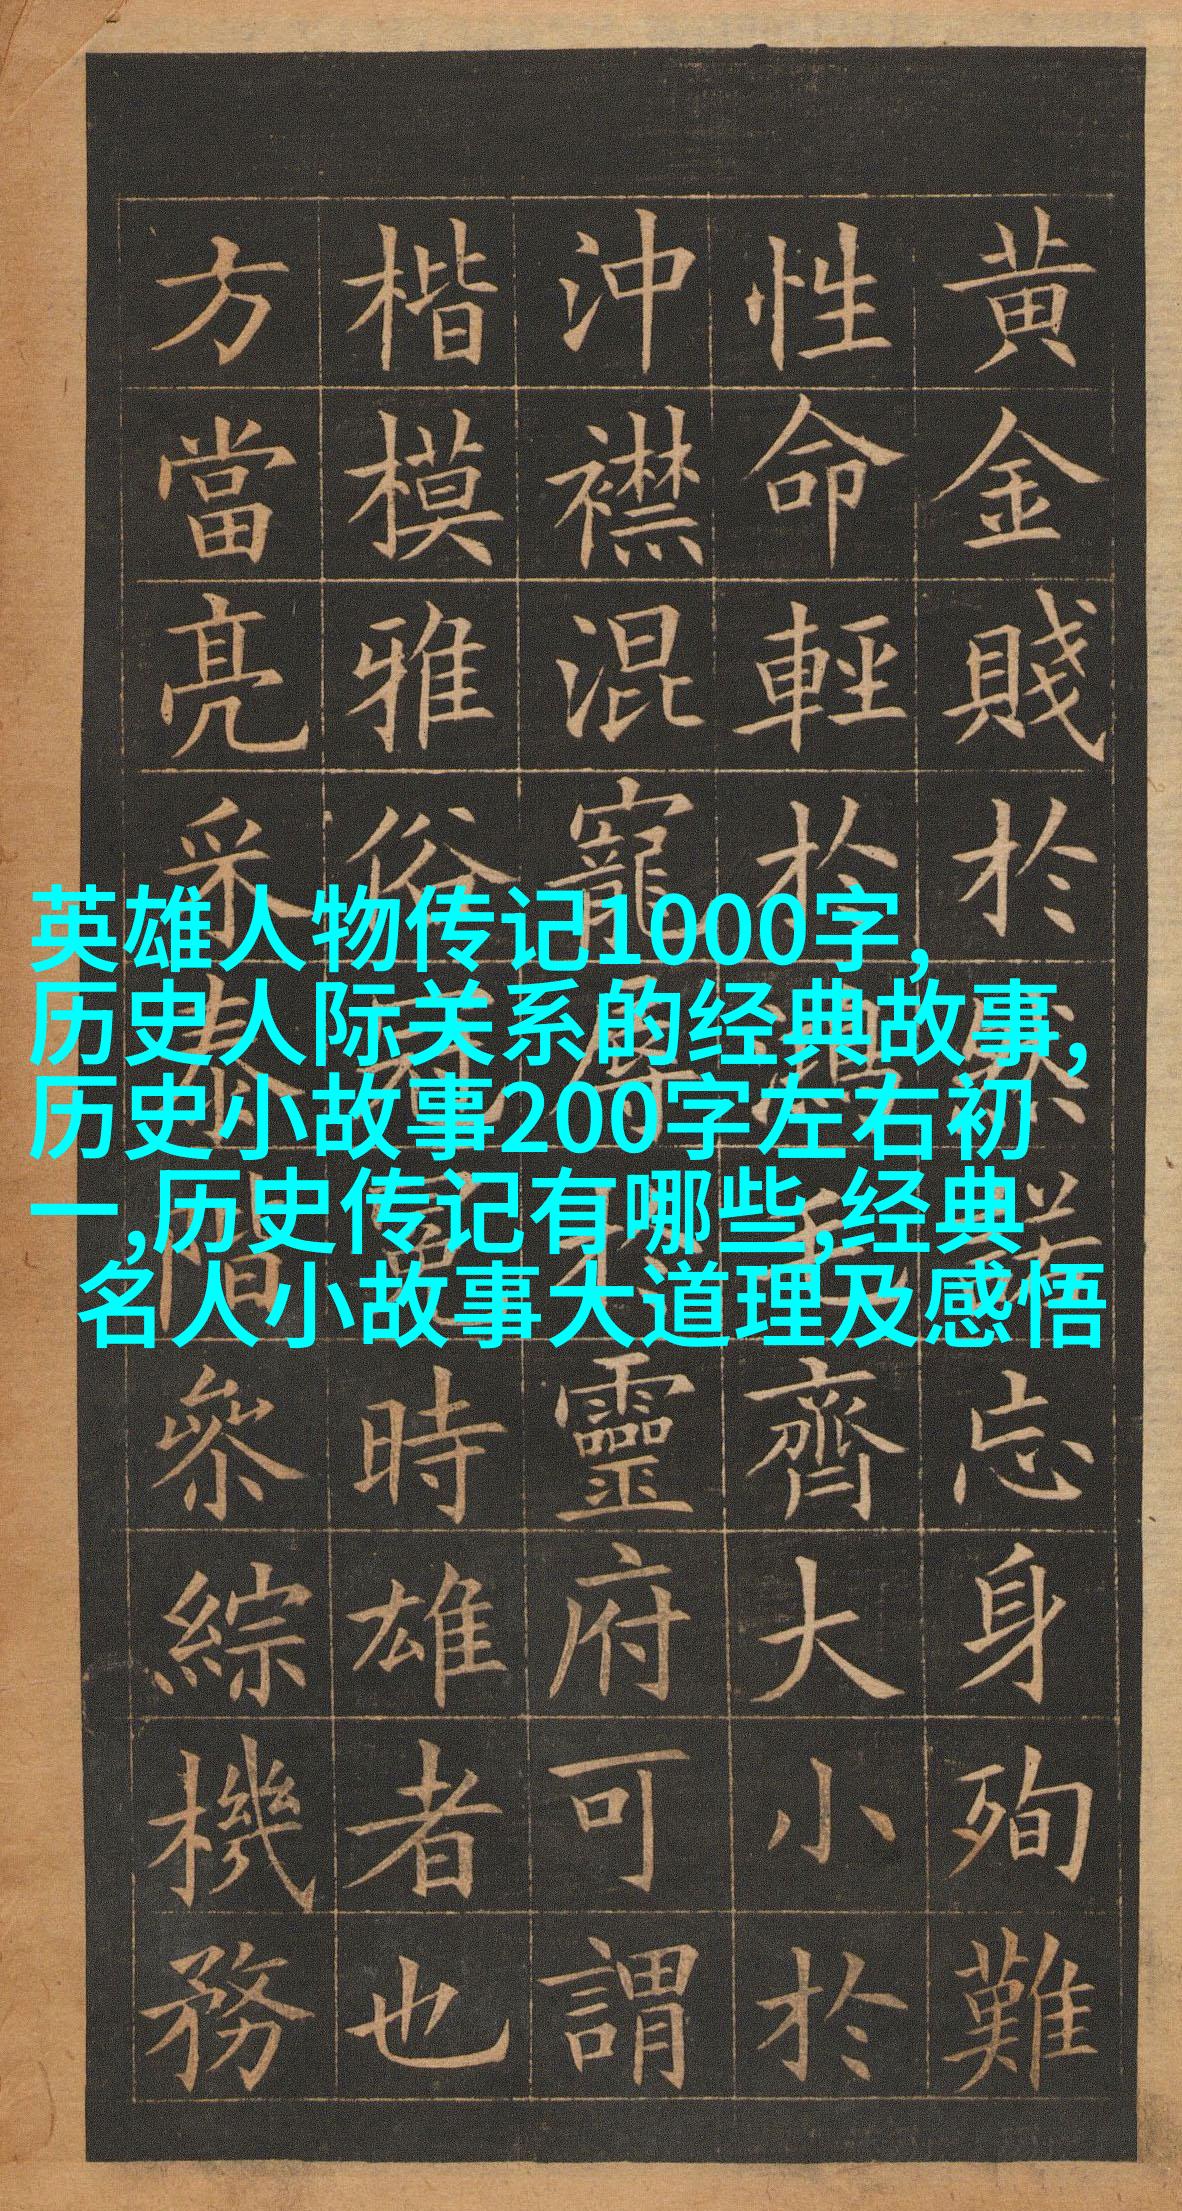 黄金賤於然諾忘身殉難
性命輕於鴻毛齊大小於
沖襟混寵辱於靈府可謂
楷模雅俗冠冕時雄者也
方當亮采泰階參綜機務
英雄人物传记1000字,
历史人际关系的经典故事,
历史小故事200字左右初
一,历史传记有哪些,经典
名人小故事大道理及感悟